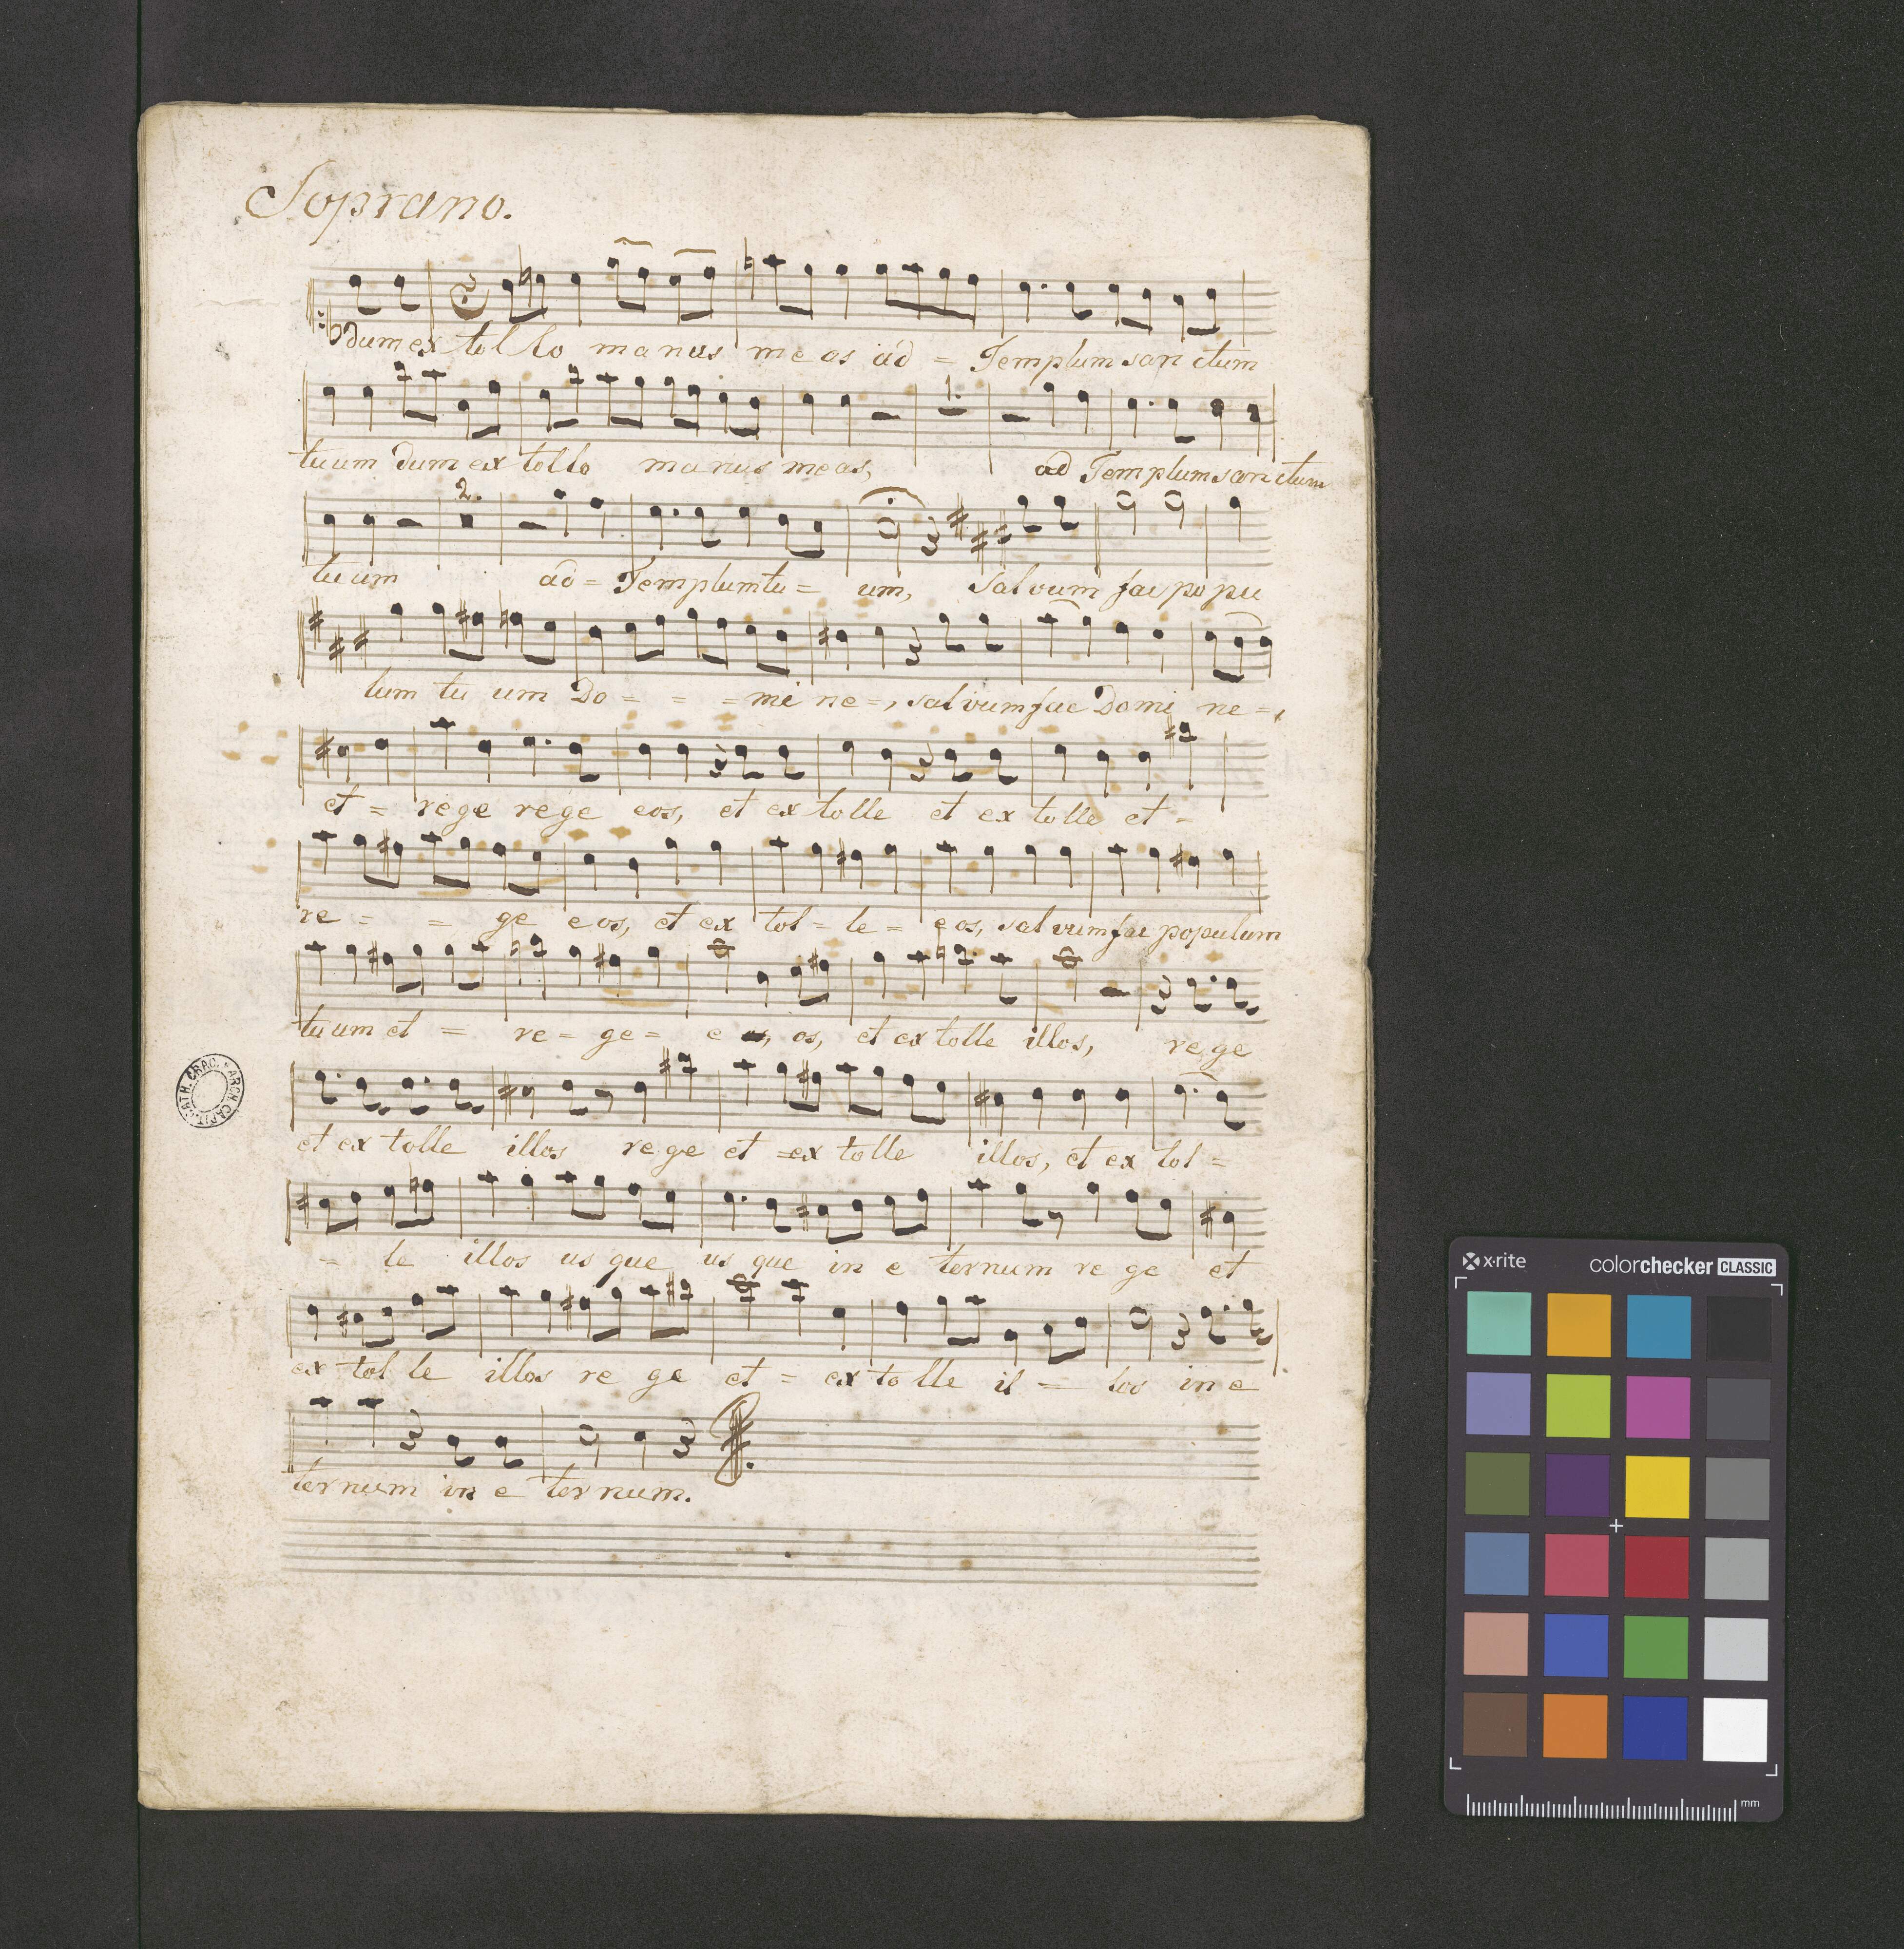 Soprano.
dum ex tol lo manus me as ad = Templum san ctum
1.
tuum dum ex tollo manus meas, ad Templum san ctum
2.
tu um ad = Templum tu = um, Salvum fac po pu
lum tu um Do = = = mi ne =, sal vum fac Domi ne =,
et = rege rege eos, et ex tolle et ex tolle et =
re = = ge e os, et ex tol = le = e os, sal vum fac populum
tu um et = re = ge = e os, et ex tolle illos, re ge
et ex tolle illos re ge et = ex tolle illos, et ex tol =
= le illos us que us que in e ternum re ge et
ex tol le illos re ge et = ex to lle il = los in e
ter num in e ter num.
CATH. CRAC. * ARCH. CAPIT.
x·rite colorchecker CLASSIC
mm